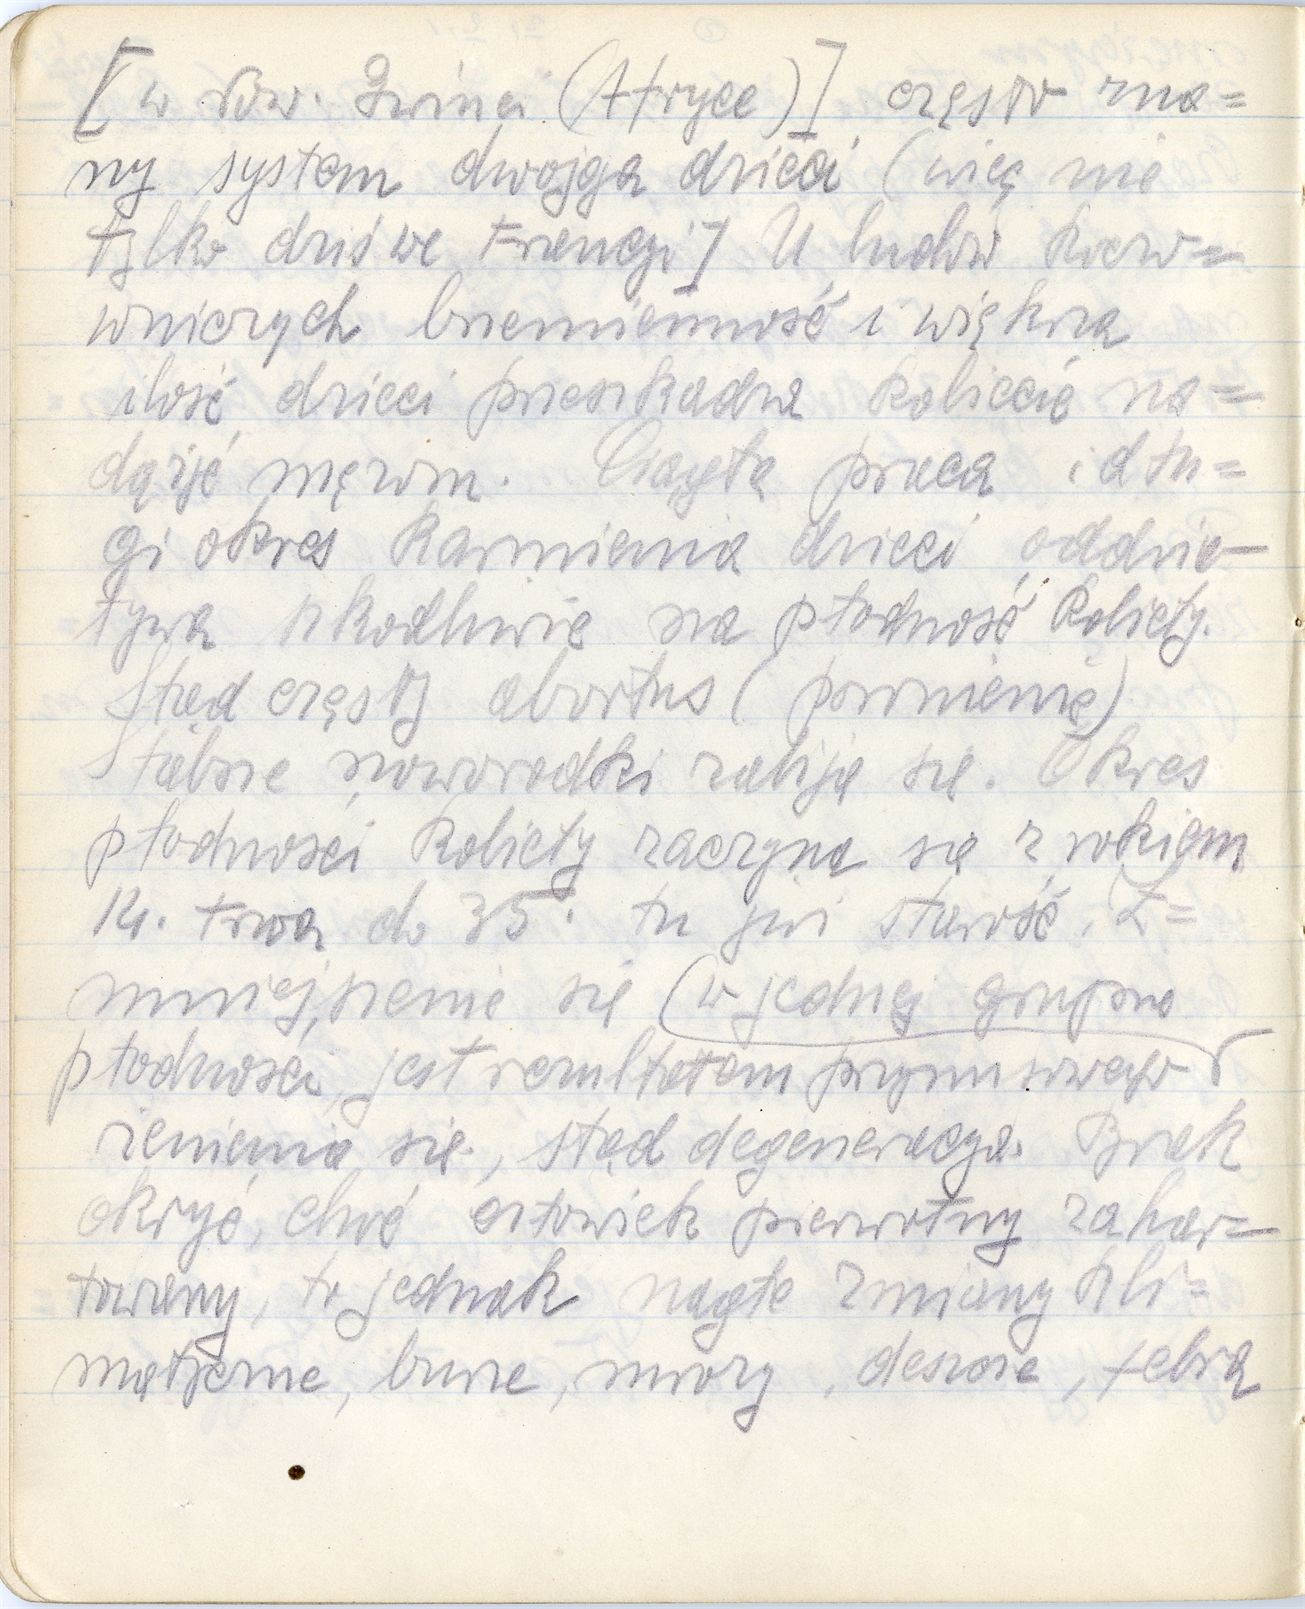 [w Now. Gwinei (Afryce)] często zna=
ny system dwojga dzieci (więc nie
tylko dziś we Francji] U ludów koczw=
wniczych brzemienność i większa
ilość dzieci przeszkadza kobiecie na=
dążyć mężom. Ciągła praca i dłu=
gi okres karmienia dzieci oddzia-
ływa szkodliwie na płodność kobiety.
Stąd częsty abortus (poronienie)
Słabsze noworodki zabija się. Okres
płodności kobiety zaczyna się z rokiem
14. trwa do 35. tu już starość. Z=
mniejszenie się (w jednej grupie
płodności, jest rezultatem przymusowego
żenienia się, stąd degeneracja. Brak
okryć, choć człowiek pierwotny zahar=
towany, to jednak nagłe zmiany kli=
matyczne, burze, mrozy, deszcze, febra